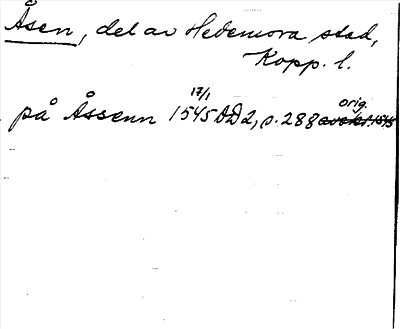 Åsen, del av Hedemora stad,
Kopp. l.
på Åssenn 17/1 1545 DD 2, p. 288 orig.
avskr. 1545